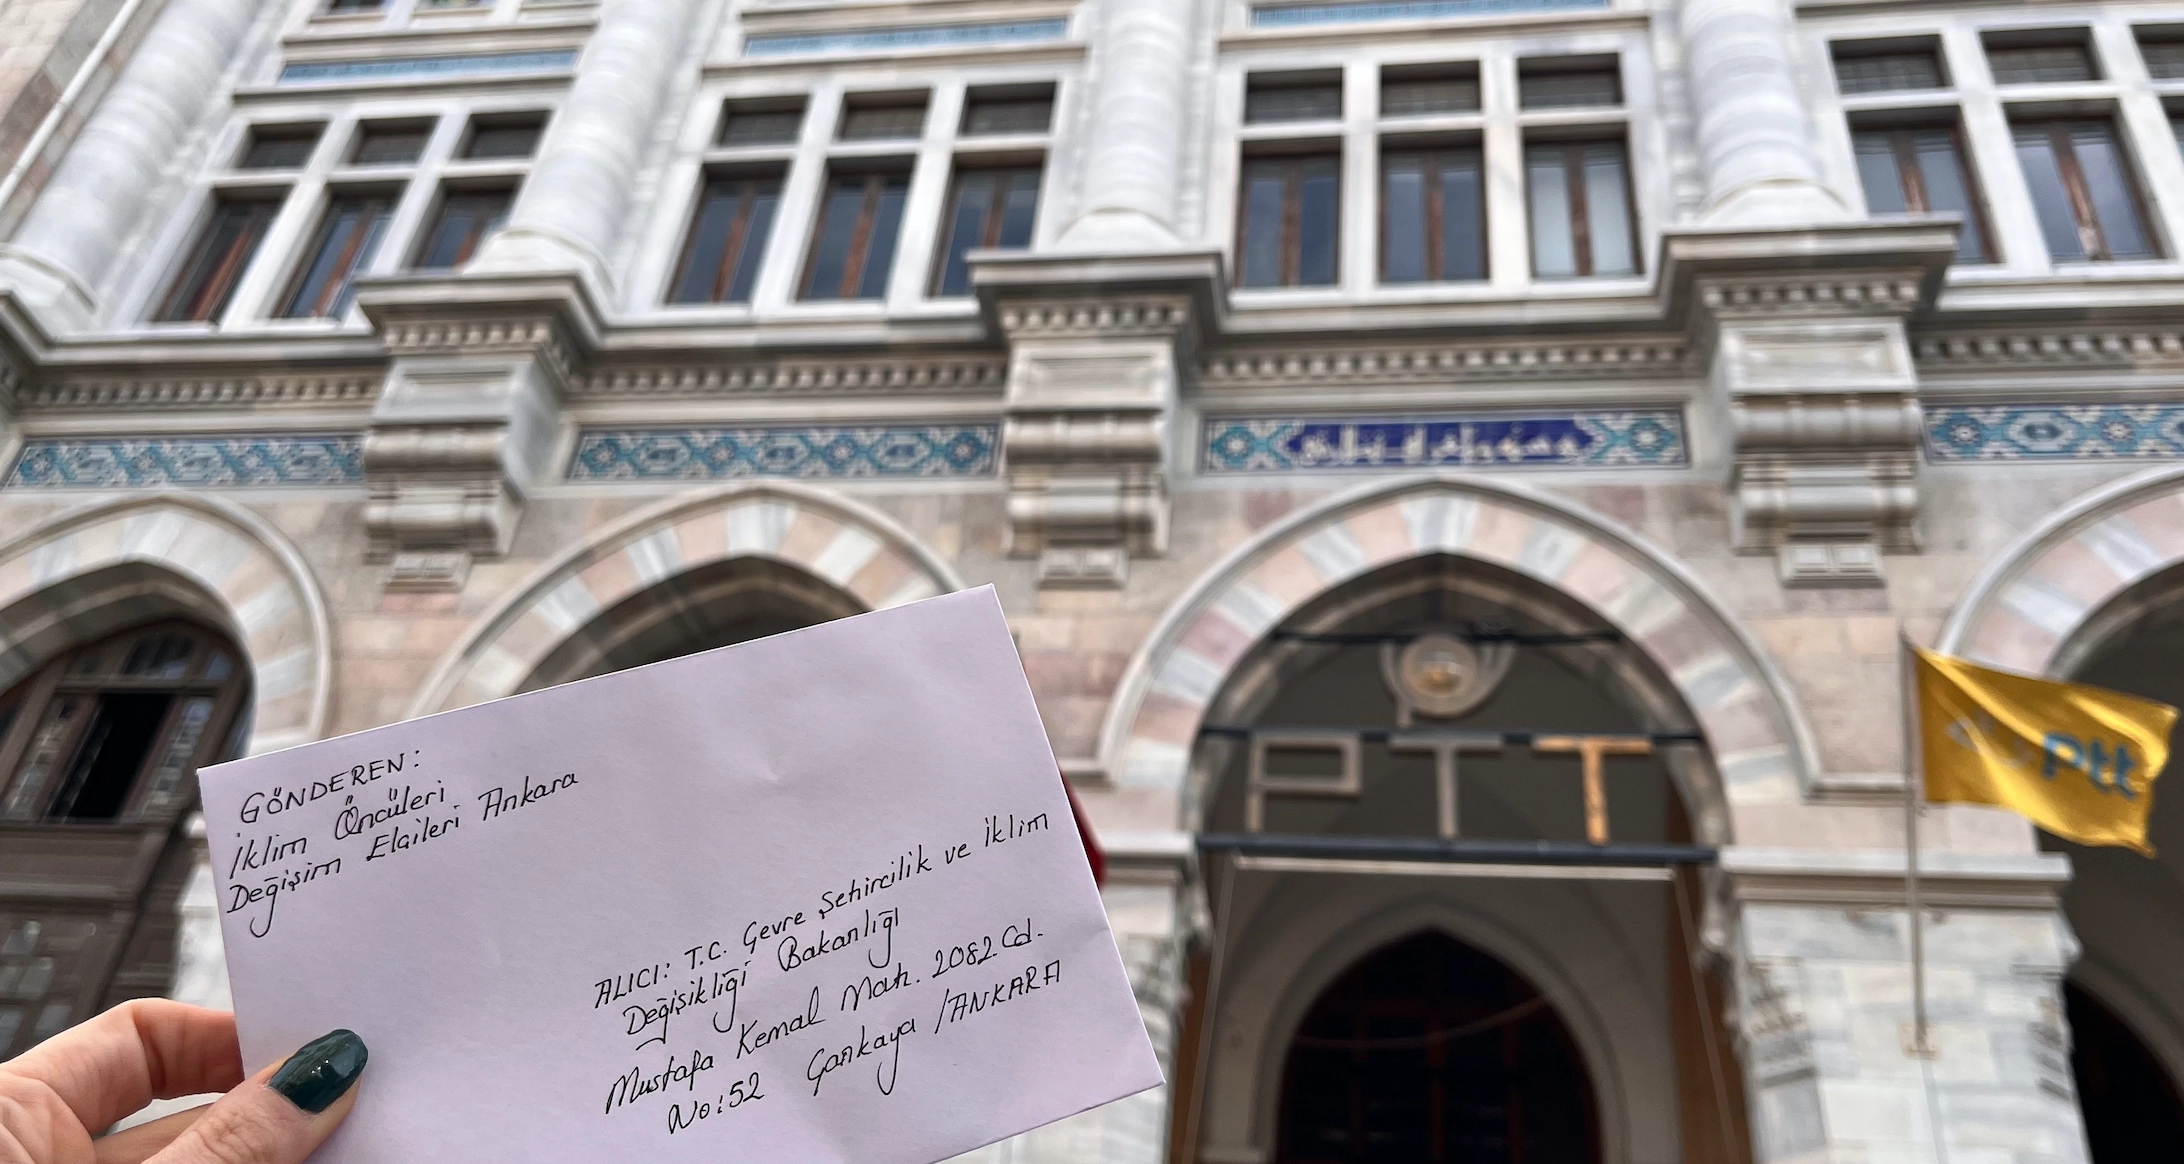 GÖNDEREN:
İklim Öncüleri
Değişim Elçileri Ankara
ALICI: T.C. Çevre Şehircilik ve İklim
Değişikliği Bakanlığı
Mustafa Kemal Mah. 2082. Cd.
No:52 Çankaya /ANKARA
PTT
Ptt